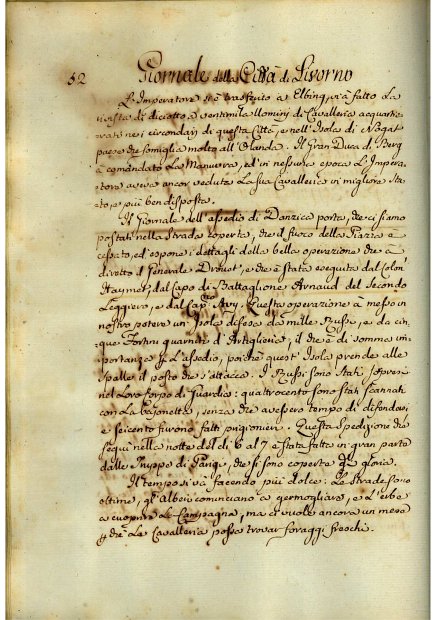 52
Giornale della Città di Livorno
L'Imperatore si è trasferito a Elbing, vi à fatto La
rivista di diciotto, a ventimila Uomini di Cavalleria acquartie
rati nei circondarj di questa Città, e nell'Isola di Nogat
paese che somiglia molto all'Olanda. Il Gran Duca di Berg
à comandato La Manuvra, ed in nessuna epoca L'Impera
tore aveva ancor veduta La sua Cavalleria in migliore sta
to, e più ben disposta.
Il Giornale dell'assedio di Danzica porta, che ci siamo
postati nella Strada coperta, che il fuoco della Piazza è
cessato, ed espone i dettagli della bella operazione che à
diretto il Generale Drouet, e che è stata eseguita dal Colon.
Aaymet, dal Capo di Battaglione Arnaud del Secondo
Leggiero, e dal Cap. Avy. Questa operazione à messo in
nostro potere un'Isola difesa da mille Russi, e da cin
que Fortini guarniti d'Artiglieria, il che è di somma im
portanza p. L'assedio, poichè quest'Isola prende alle
spalle il posto che s'attacca. I Russi sono stati sopresi
nel Loro Corpo di Guardia: quattrocento sono stati scannati
con La Bajonetta, senza che avessero tempo di difendersi
e seicento furono fatti prigionieri. Questa Spedizione che
seguì nella notte del dì 6 al 7 è stata fatta in gran parte
dalle Truppe di Parigi, che si sono coperte di gloria.
Il tempo si và facendo più dolce: Le Strade sono
ottime, gl'Alberi cominciano a germogliare, e L'erba
a cuoprire Le Campagna, ma ci vuole ancora un mese
p. che La Cavalleria possa trovar foraggi freschi.